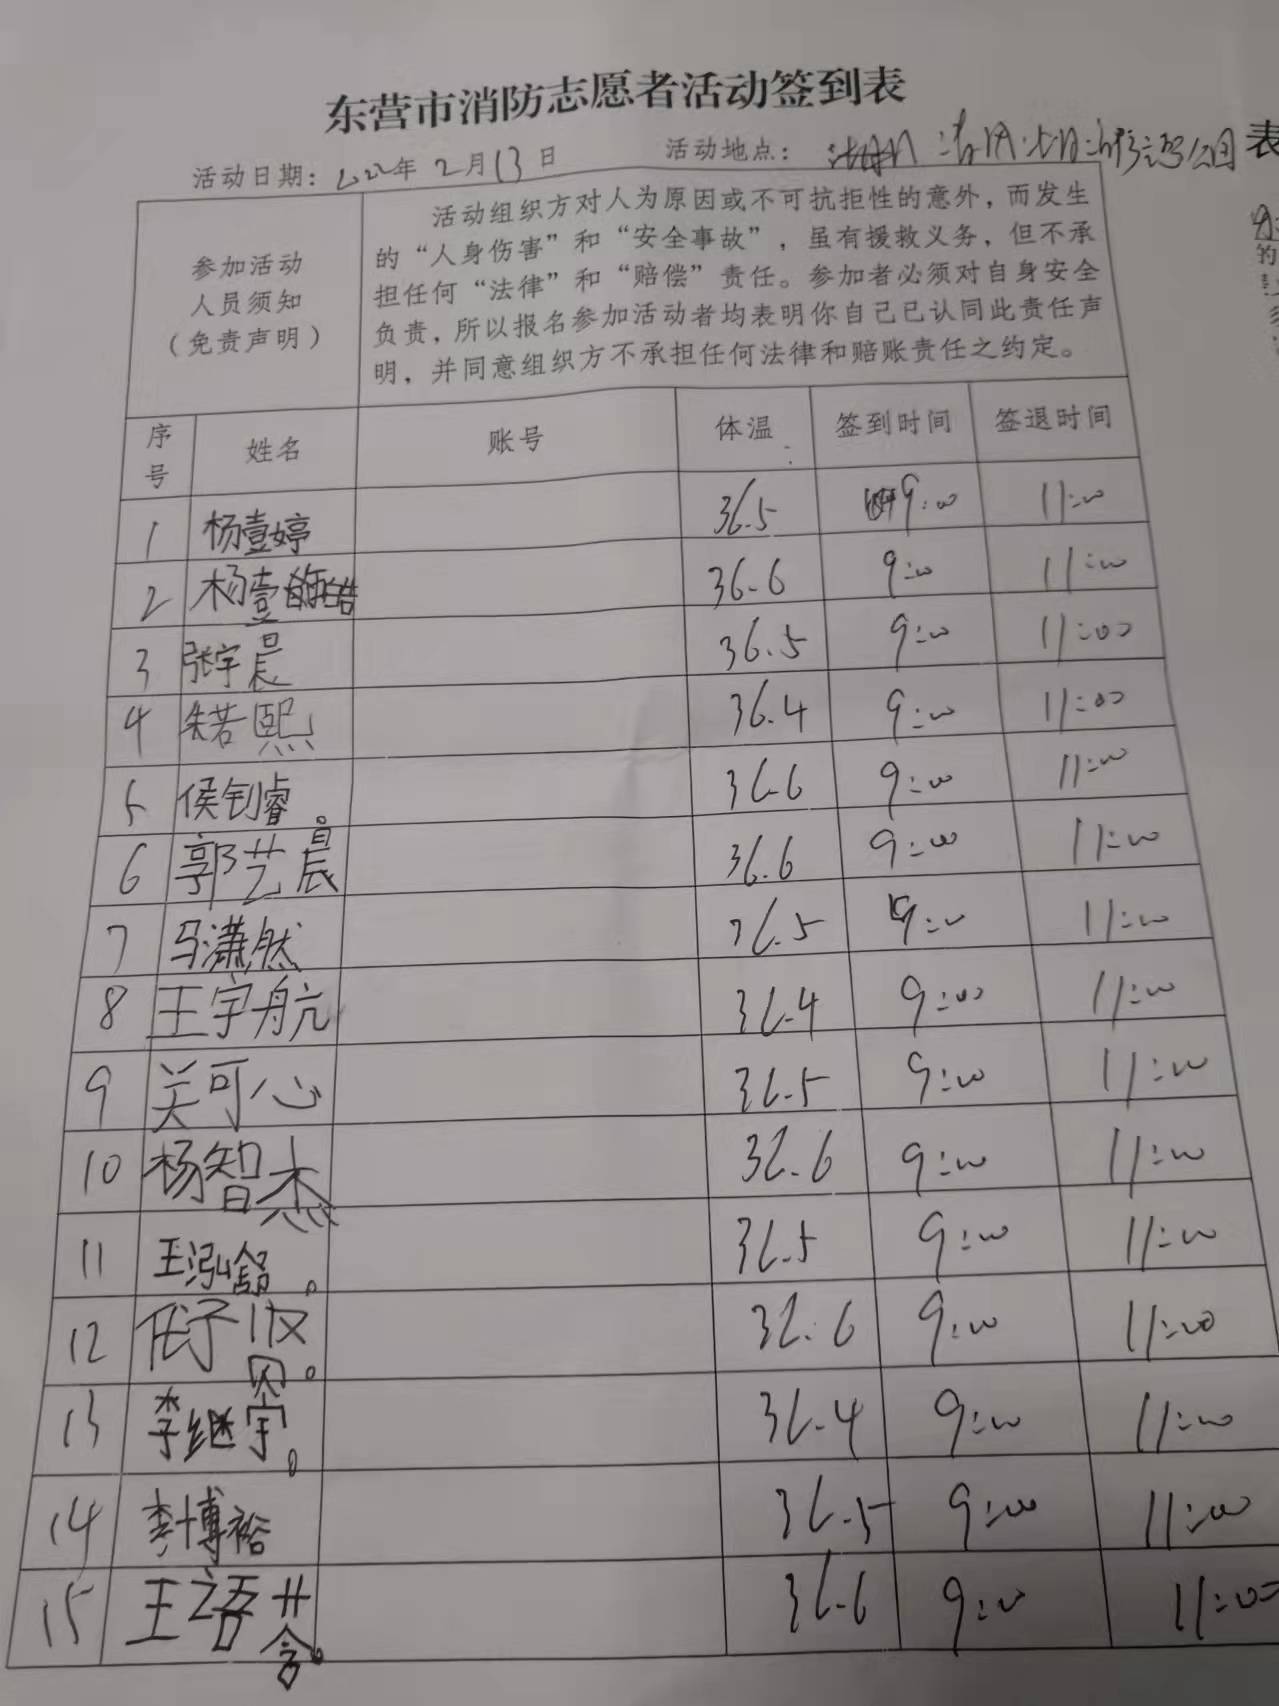 东营市消防志愿者活动签到表
活动日期：2022年2月13日 活动地点： 公园
表
参加活动
人员须知
（免责声明）
活动组织方对人为原因或不可抗拒性的意外，而发生
的“人身伤害”和“安全事故”，虽有援救义务，但不承
担任何“法律”和“赔偿”责任。参加者必须对自身安全
负责，所以报名参加活动者均表明你自己已认同此责任声
明，并同意组织方不承担任何法律和赔账责任之约定。
序号 姓名 账号 体温 签到时间 签退时间
1 杨壹婷 36.5 9:00 11:00
2 杨壹皓 36.6 9:00 11:00
3 张宇晨 36.5 9:00 11:00
4 朱若熙 36.4 9:00 11:00
5 侯钊睿。 36.6 9:00 11:00
6 郭艺晨 36.6 9:00 11:00
7 马潇然 36.5 9:00 11:00
8 王宇航 36.4 9:00 11:00
9 关可心 36.5 9:00 11:00
10 杨智杰 36.6 9:00 11:00
11 王泓舒。 36.5 9:00 11:00
12 任子 36.6 9:00 11:00
13 李继宇。 36.4 9:00 11:00
14 李博裕 36.5 9:00 11:00
15 王语荟。 36.6 9:00 11:00